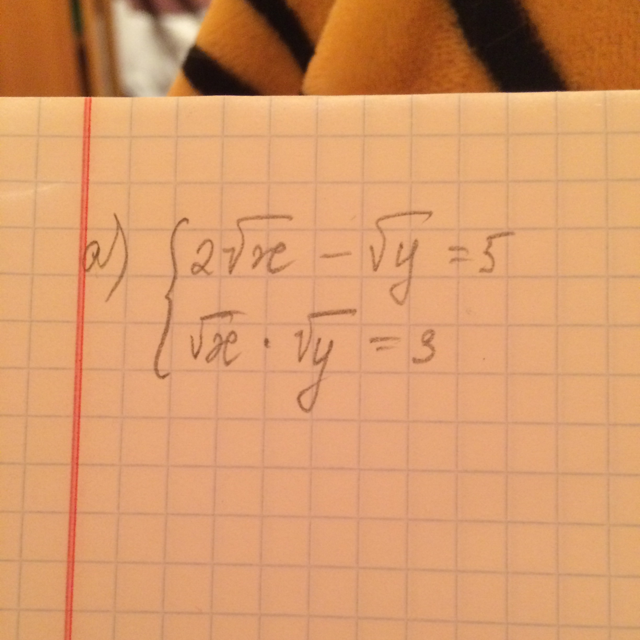 а) { 2√x − √y = 5
√x · √y = 3